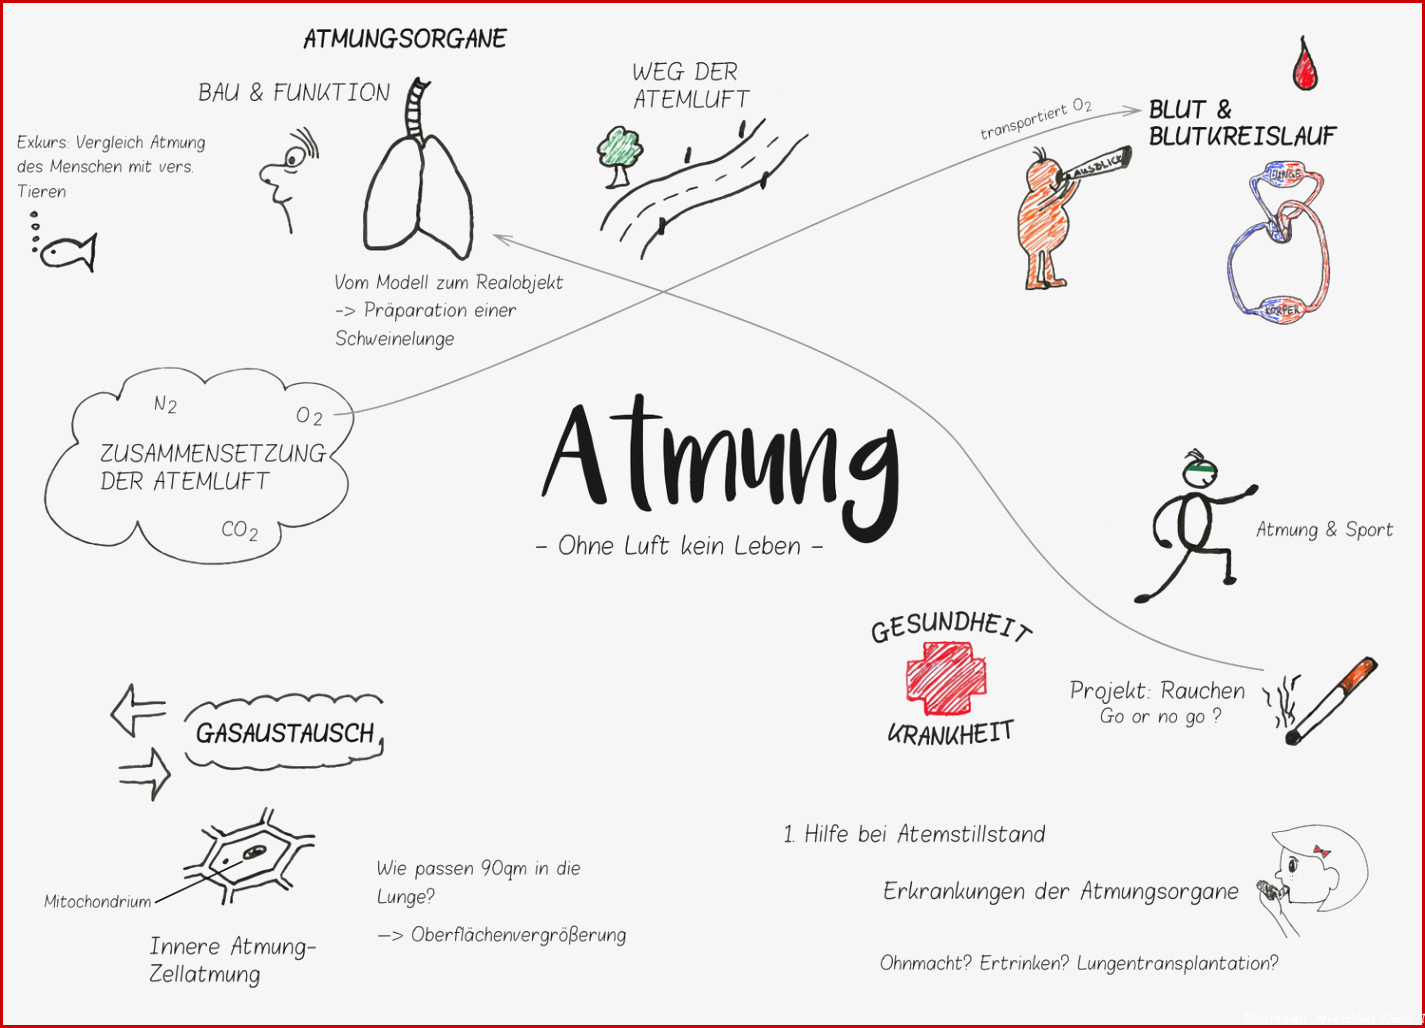 ATMUNGSORGANE
BAU & FUNKTION
WEG DER
ATEMLUFT
Exkurs: Vergleich Atmung
des Menschen mit vers.
Tieren
Vom Modell zum Realobjekt
-> Präparation einer
Schweinelunge
transportiert O2
BLUT &
BLUTKREISLAUF
AUSBLICK
LUNGE
KÖRPER
N2
O2
ZUSAMMENSETZUNG
DER ATEMLUFT
CO2
Atmung
- Ohne Luft kein Leben -
Atmung & Sport
GESUNDHEIT
KRANKHEIT
Projekt: Rauchen
Go or no go ?
GASAUSTAUSCH
Mitochondrium
Innere Atmung-
Zellatmung
Wie passen 90qm in die
Lunge?
—> Oberflächenvergrößerung
1. Hilfe bei Atemstillstand
Erkrankungen der Atmungsorgane
Ohnmacht? Ertrinken? Lungentransplantation?